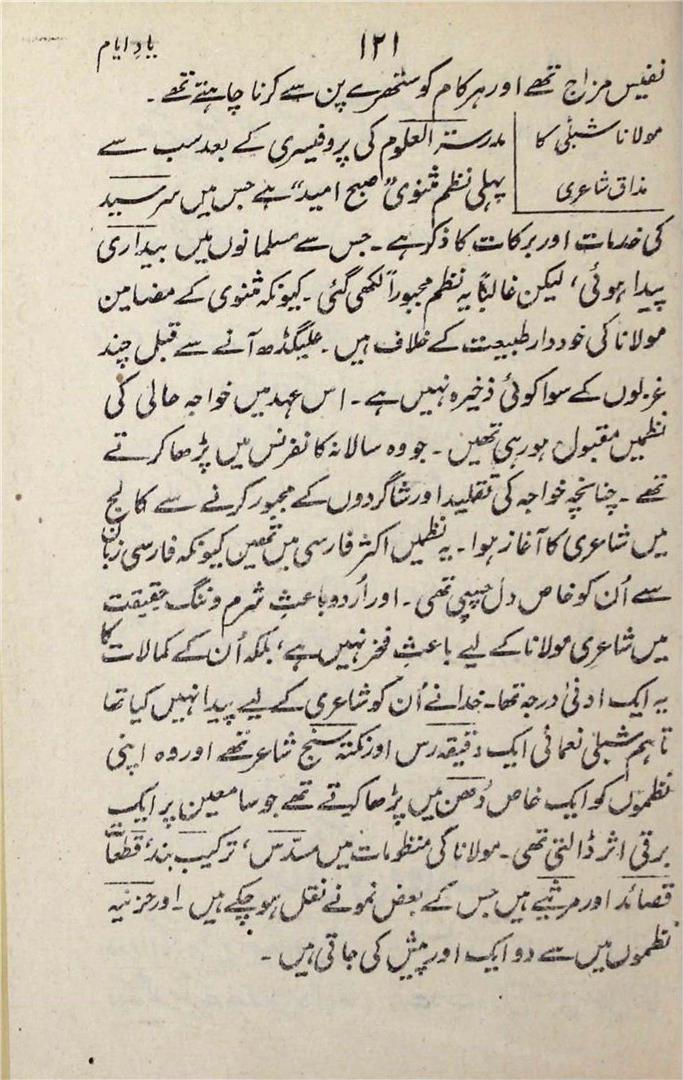 ۱۲۱
یادِ ایام
نفیس مزاج تھے اور ہر کام کو ستھرے پن سے کرنا چاہتے تھے ۔
مولانا شبلی کا
مذاق شاعری
مدرستہ العلوم کی پروفیسری کے بعد سب سے
پہلی نظم مثنوی ”صبح امید“ ہے جس میں سر سید
کی خدمات اور برکات کا ذکر ہے ۔ جس سے مسلمانوں میں بیداری
پیدا ہوئی، لیکن غالباً یہ نظم مجبوراً لکھی گئی ۔ کیونکہ مثنوی کے مضامین
مولانا کی خوددار طبیعت کے خلاف ہیں ۔ علیگڈھ آنے سے قبل چند
غزلوں کے سوا کوئی ذخیرہ نہیں ہے ۔ اس عہد میں خواجہ حالی کی
نظمیں مقبول ہو رہی تھیں ۔ جو وہ سالانہ کانفرنس میں پڑھا کرتے
تھے ۔ چنانچہ خواجہ کی تقلید اور شاگردوں کے مجبور کرنے سے کالج
میں شاعری کا آغاز ہوا ۔ یہ نظمیں اکثر فارسی میں تھیں کیونکہ فارسی زبان
سے اُن کو خاص دل چسپی تھی ۔ اور اُردو باعثِ شرم و ننگ حقیقت
میں شاعری مولانا کے لیے باعثِ فخر نہیں ہے، بلکہ اُن کے کمالات کا
یہ ایک ادنیٰ درجہ تھا ۔ خدا نے اُن کو شاعری کے لیے پیدا نہیں کیا تھا
تاہم شبلی نعمانی ایک دقیقہ رس اور نکتہ سنج شاعر تھے اور وہ اپنی
نظموں کو ایک خاص دُھن میں پڑھا کرتے تھے جو سامعین پر ایک
برقی اثر ڈالتی تھی ۔ مولانا کی منظومات میں مسدس، ترکیب بند، قطعات
قصائد اور مرثیے ہیں جس کے بعض نمونے نقل ہو چکے ہیں ۔ اور حزنیہ
نظموں میں سے دو ایک اور پیش کی جاتی ہیں ۔